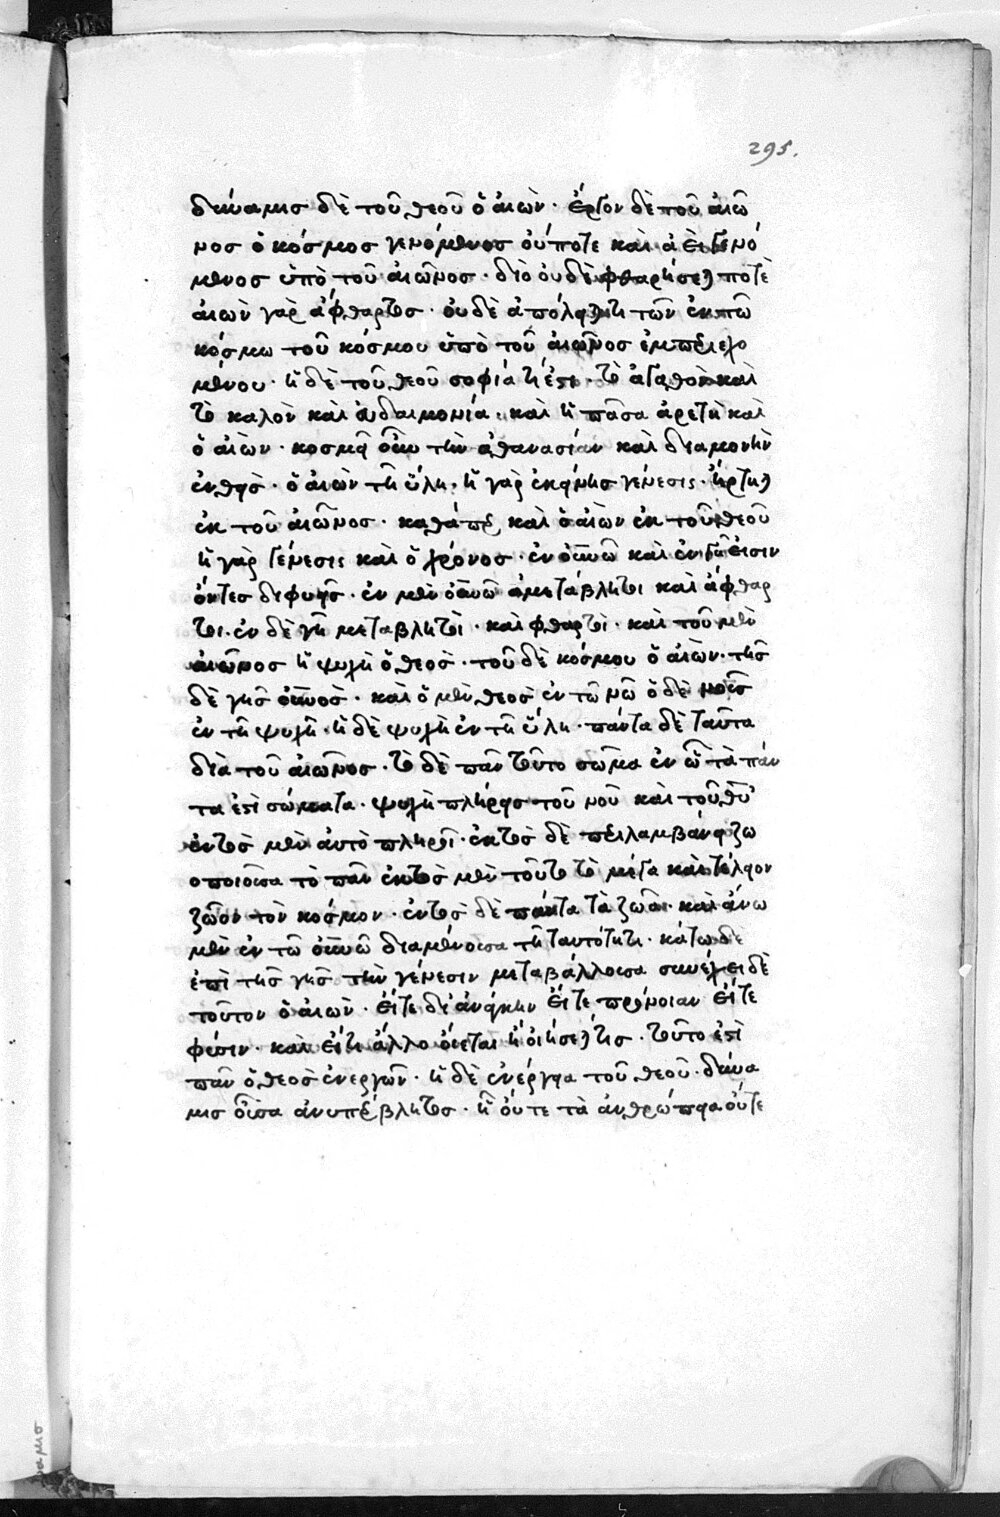 295.
δύναμις δὲ τοῦ θεοῦ ὁ αἰών· ἔργον δὲ τοῦ αἰῶ
νος ὁ κόσμος γενόμενος οὔποτε καὶ ἀεὶ γενό
μενος ὑπὸ τοῦ αἰῶνος· διὸ οὐδὲ φθαρήσεται ποτὲ
αἰὼν γὰρ ἄφθαρτος· οὐδὲ ἀπόλειταί τι τῶν ἐν τῶ
κόσμω τοῦ κόσμου ὑπὸ τοῦ αἰῶνος ἐμπεριεχο
μένου· ἡ δὲ τοῦ θεοῦ σοφία τί ἐστι· τὸ ἀγαθὸν καὶ
τὸ καλὸν καὶ εὐδαιμονία· καὶ ἡ πᾶσα ἀρετὴ καὶ
ὁ αἰών· κοσμεῖ οὖν τὴν ἀθανασίαν καὶ διαμονὴν
ἐνθεὶς· ὁ αἰὼν τῆ ὕλη· ἡ γὰρ ἐκείνης γένεσις· ἤρτηται
ἐκ τοῦ αἰῶνος· καθάπερ καὶ ὁ αἰὼν ἐκ τοῦ θεοῦ
ἡ γὰρ γένεσις καὶ ὁ χρόνος· ἐν οὐνῶ καὶ ἐν γῆ εἰσιν
ὄντες διφυεῖς· ἐν μὲν οὐνῶ ἀμετάβλητοι καὶ ἄφθαρ
τοι· ἐν δὲ γῆ μεταβλητοὶ· καὶ φθαρτοὶ· καὶ τοῦ μὲν
αἰῶνος ἡ ψυχὴ ὁ θεος· τοῦ δὲ κόσμου ὁ αἰών· τῆς
δὲ γῆς οὐνος· καὶ ὁ μὲν θεος ἐν τῶ νῶ ὁ δὲ νοῦς
ἐν τῆ ψυχῆ· ἡ δὲ ψυχὴ ἐν τῆ ὕλη· πάντα δὲ ταῦτα
διὰ τοῦ αἰῶνος· τὸ δὲ πᾶν τοῦτο σῶμα ἐν ὧ τὰ πάν
τα ἐστὶ σώματα· ψυχὴ πλήρης τοῦ νοῦ καὶ τοῦ θυ
ἐντὸς μὲν αὐτὸ πληροῖ· ἐκτὸς δὲ περιλαμβάνει ζω
οποιοῦσα τὸ πᾶν ἐκτὸς μὲν τοῦτο τὸ μέγα καὶ τέλειον
ζῶον τὸν κόσμον· ἐντὸς δὲ πάντα τὰ ζῶα· καὶ ἄνω
μὲν ἐν τῶ οὐνῶ διαμένουσα τῆ ταυτότητι· κάτω δὲ
ἐπὶ τῆς γῆς τὴν γένεσιν μεταβάλλουσα συνέχει δὲ
τοῦτον ὁ αἰὼν· εἴτε δι' ἀνάγκην εἴτε πρόνοιαν εἴτε
φύσιν· καὶ εἴ τι ἄλλο οἴεται ἢ οἰήσεταί τις· τοῦτο ἐστὶ
πᾶν ὁ θεος ἐνεργῶν· ἡ δὲ ἐνέργεια τοῦ θεοῦ· δύνα
μις οὖσα ἀνυπέρβλητος· ἧ οὔτε τὰ ἀνθρώπεια οὔτε